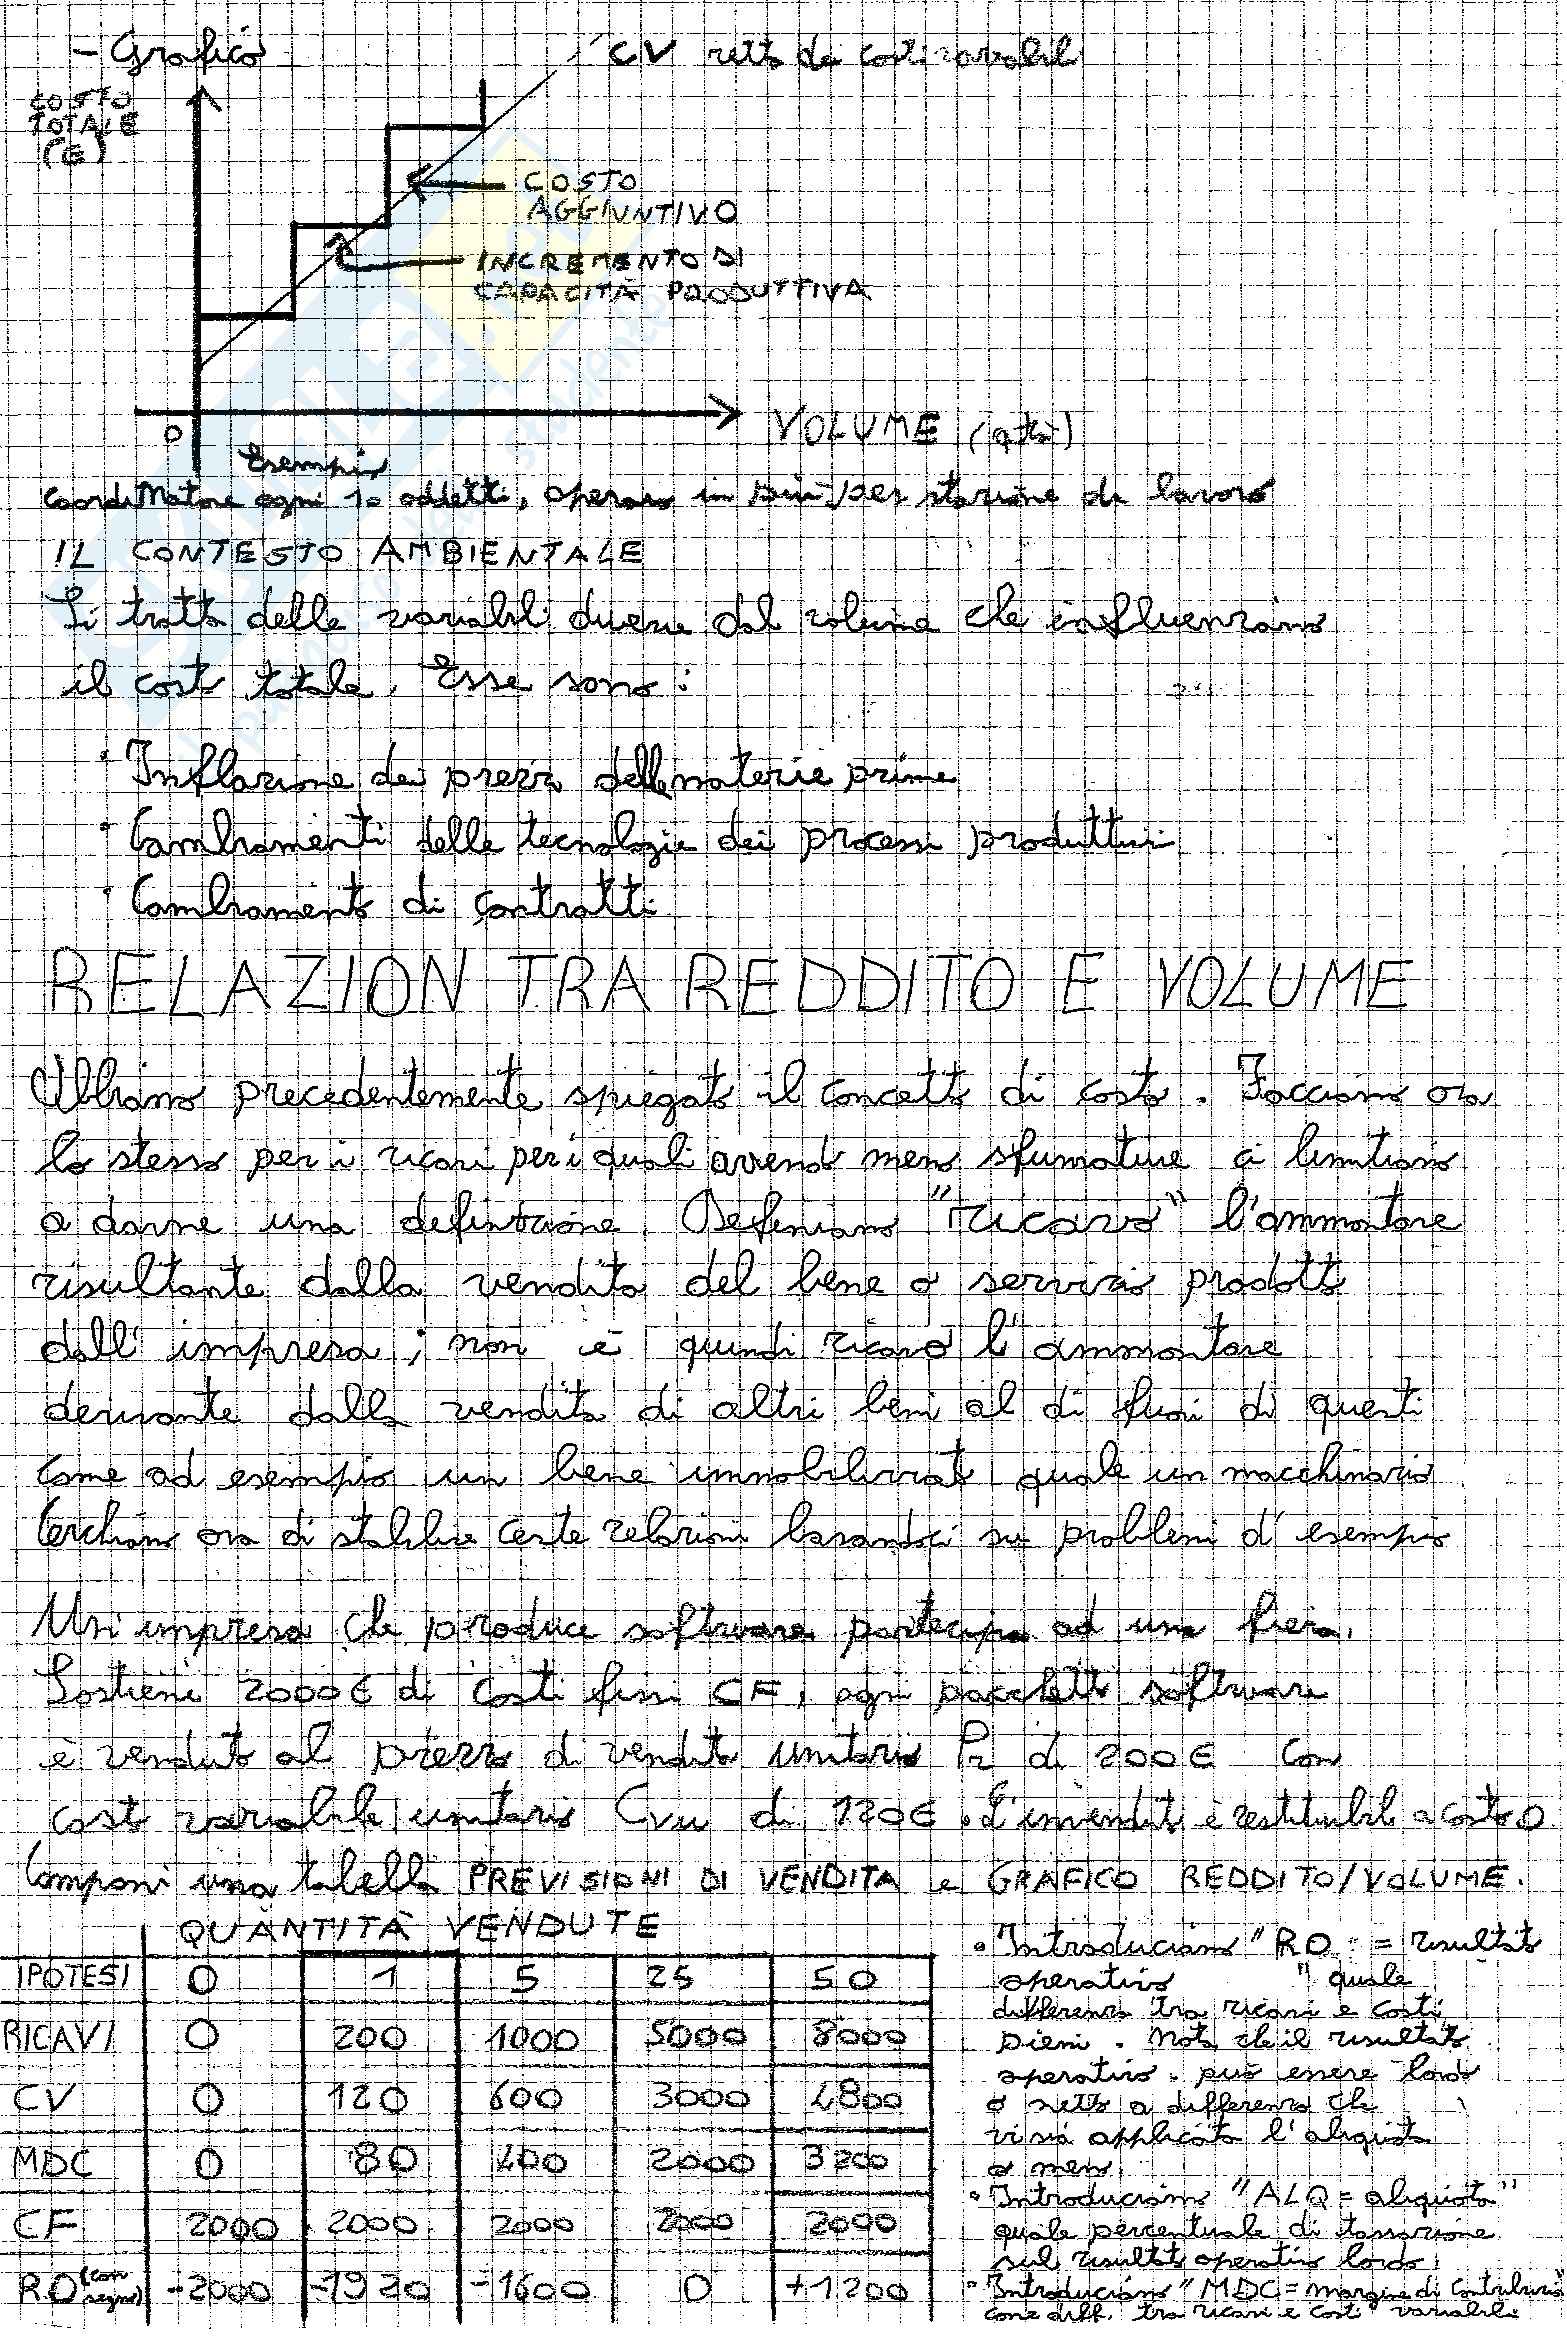 - Grafico
CV retta dei costi variabili
COSTO
TOTALE
(€)
COSTO
AGGIUNTIVO
INCREMENTO DI
CAPACITÀ PRODUTTIVA
0
VOLUME (qtà)
Esempio
Coordinatore ogni 10 addetti, operaio in più per stazione di lavoro
IL CONTESTO AMBIENTALE
Si tratta delle variabili diverse dal volume che influenzano
il costo totale. Esse sono:
• Inflazione dei prezzi delle materie prime
• Cambiamenti delle tecnologie dei processi produttivi
• Cambiamento di contratti
RELAZION TRA REDDITO E VOLUME
Abbiamo precedentemente spiegato il concetto di costo. Facciamo ora
lo stesso per i ricavi per i quali avendo meno sfumature ci limitiamo
a darne una definizione. Definiamo "ricavo" l'ammontare
risultante dalla vendita del bene o servizio prodotto
dall'impresa; non è quindi ricavo l'ammontare
derivante dalla vendita di altri beni al di fuori di questi
come ad esempio un bene immobilizzato quale un macchinario
Cerchiamo ora di stabilire certe relazioni basandoci su problemi d'esempio
Un'impresa che produce software partecipa ad una fiera.
Sostiene 2000€ di costi fissi CF, ogni pacchetto software
è venduto al prezzo di vendita unitario Pr di 200€ con
costo variabile unitario Cvu di 120€. L'invenduto è restituibile a costo 0
Componi una tabella PREVISIONI DI VENDITA e GRAFICO REDDITO/VOLUME.
QUANTITÀ VENDUTE
IPOTESI 0 1 5 25 50
RICAVI 0 200 1000 5000 8000
CV 0 120 600 3000 4800
MDC 0 80 400 2000 3200
CF 2000 2000 2000 2000 2000
RO (con segno) -2000 -1920 -1600 0 +1200
• Introduciamo "RO := risultato
operativo" quale
differenza tra ricavi e costi
pieni. Nota che il risultato
operativo può essere lordo
o netto a differenza che
vi sia applicata l'aliquota
o meno.
• Introduciamo "ALQ = aliquota"
quale percentuale di tassazione
sul risultato operativo lordo
• Introduciamo "MDC = margine di contribuzione"
come diff. tra ricavi e costi variabili